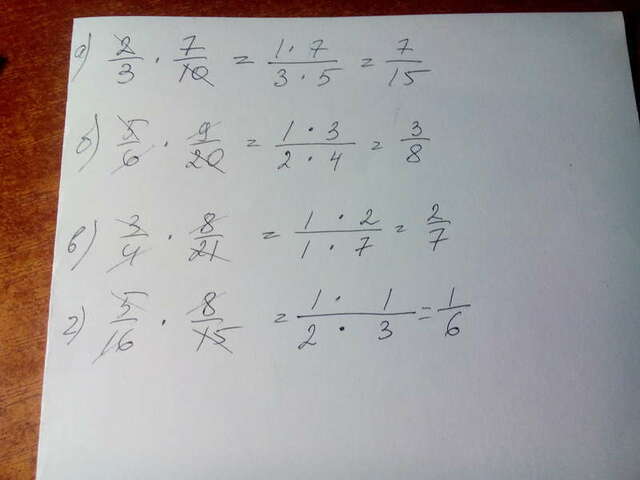 а) 2/3 · 7/10 = 1 · 7/3 · 5 = 7/15
б) 5/6 · 9/20 = 1 · 3/2 · 4 = 3/8
в) 3/4 · 8/21 = 1 · 2/1 · 7 = 2/7
г) 5/16 · 8/15 = 1 · 1/2 · 3 = 1/6